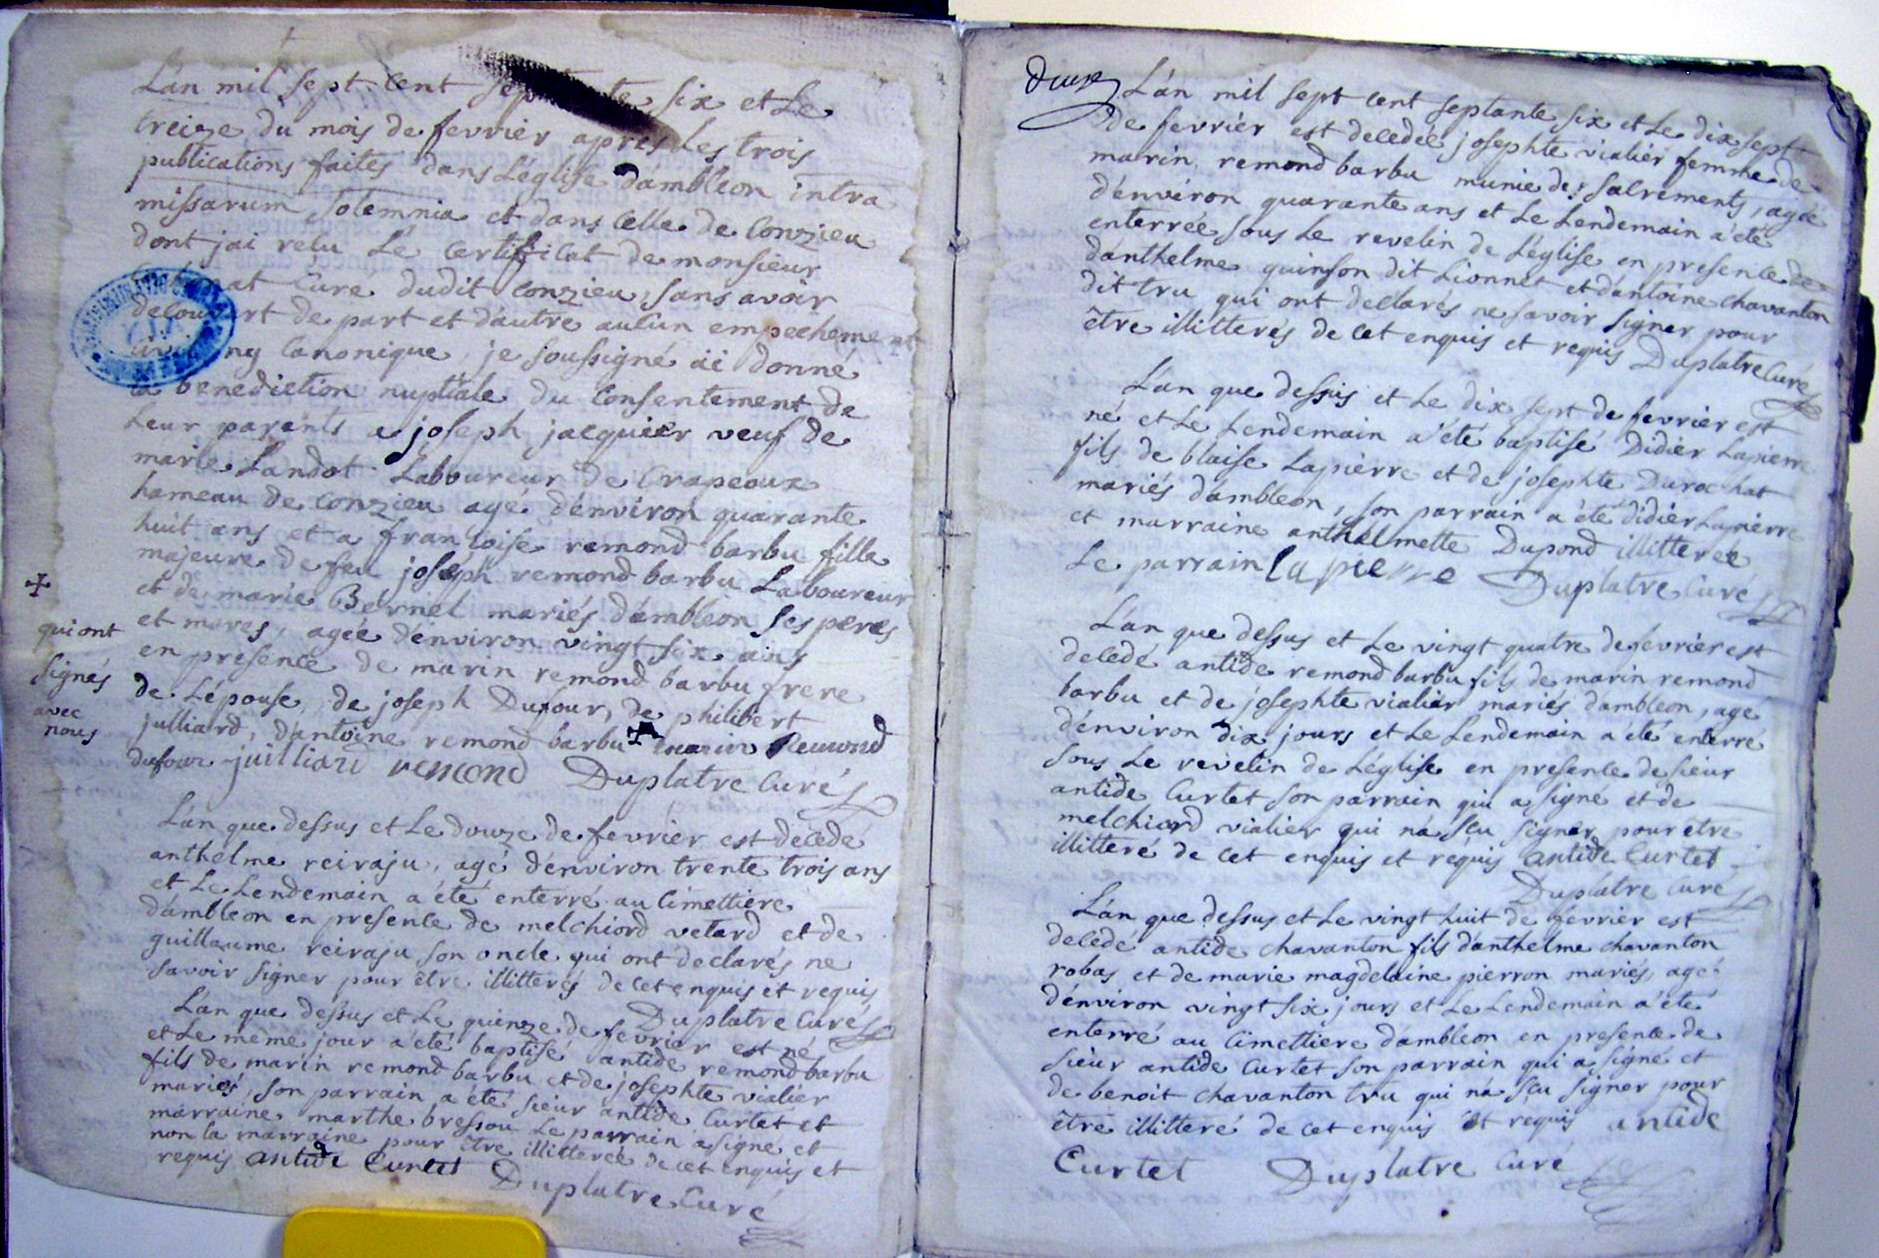 L'an mil sept cent six et Le
treize du mois de fevrier apres Les trois
publications faites dans L'eglise d'ambleon intra
missarum solemnia et dans celle de Conzieu
dont jai relu Le certificat de monsieur
Curé dudit Conzieu, sans avoir
decouvert de part et d'autre aucun empechement
ny Canonique, je soussigné ai donné
la benediction nuptiale du Consentement de
Leur parents a joseph jacquier veuf de
marie Landot Laboureur de Crapeoux
hameau de Conzieu agé d'environ quarante
huit ans et a francoise remond barbu fille
majeure de feu joseph remond barbu Laboureur
et de marie Bernel mariés d'ambleon ses peres
et meres, agée d'environ vingt six ans
en presence de marin remond barbu frere
de L'épouse, de joseph Dufour, de philibert
julliard, d'antoine remond barbu ✝ marin Remond
dufour juilliard remond Duplatre Curé
✝
qui ont
signés
avec
nous
L'an que dessus et Le douze de fevrier est decedé
anthelme reiraju, agé d'environ trente trois ans
et Le Lendemain a été enterré au Cimettiere
d'ambleon en presence de melchiord vetard et de
guillaume reiraju son oncle qui ont declarés ne
savoir signer pour être illitterés de cet enquis et requis
Duplatre Curé
L'an que dessus et Le quinze de fevrier est né
et Le même jour a été baptisé antide remond barbu
fils de marin remond barbu et de josephte vialier
mariés, son parrain a été sieur antide Curtet et
marraine marthe bressou Le parrain a signé et
non la marraine pour être illitterée de cet enquis et
requis antide Curtet Duplatre Curé
deces L'an mil sept cent septante six et Le dix sept
de fevrier est decedée josephte vialier femme de
marin remond barbu munie des sacrements, agée
d'environ quarante ans et Le Lendemain a été
enterrée sous Le revelin de L'église en presence de
d'anthelme quinson dit Lionnet et d'antoine Chavanton
dit tru qui ont declarés ne savoir signer pour
être illitterés de cet enquis et requis Duplatre Curé
L'an que dessus et Le dix sept de fevrier est
né et Le Lendemain a été baptisé Didier Lapierre
fils de blaise Lapierre et de josephte Durochat
mariés d'ambleon, son parrain a été didier Lapierre
et marraine anthelmette Dupond illitterée
Le parrain lapierre Duplatre Curé
L'an que dessus et Le vingt quatre de fevrier est
decedé antide remond barbu fils de marin remond
barbu et de josephte vialier mariés d'ambleon, agé
d'environ dix jours et Le Lendemain a été enterré
sous Le revelin de L'église en presence de sieur
antide Curtet son parrain qui a signé et de
melchiord vialier qui n'a scu signer pour être
illitteré de cet enquis et requis antide Curtet
Duplatre Curé
L'an que dessus et Le vingt huit de fevrier est
decedé antide chavanton fils d'anthelme chavanton
robas, et de marie magdelaine pierron mariés, agé
d'environ vingt six jours et Le Lendemain a été
enterré au Cimettiere d'ambleon en presence de
sieur antide Curtet son parrain qui a signé et
de benoit chavanton tru qui n'a scu signer pour
être illitteré de cet enquis et requis antide
Curtet Duplatre Curé